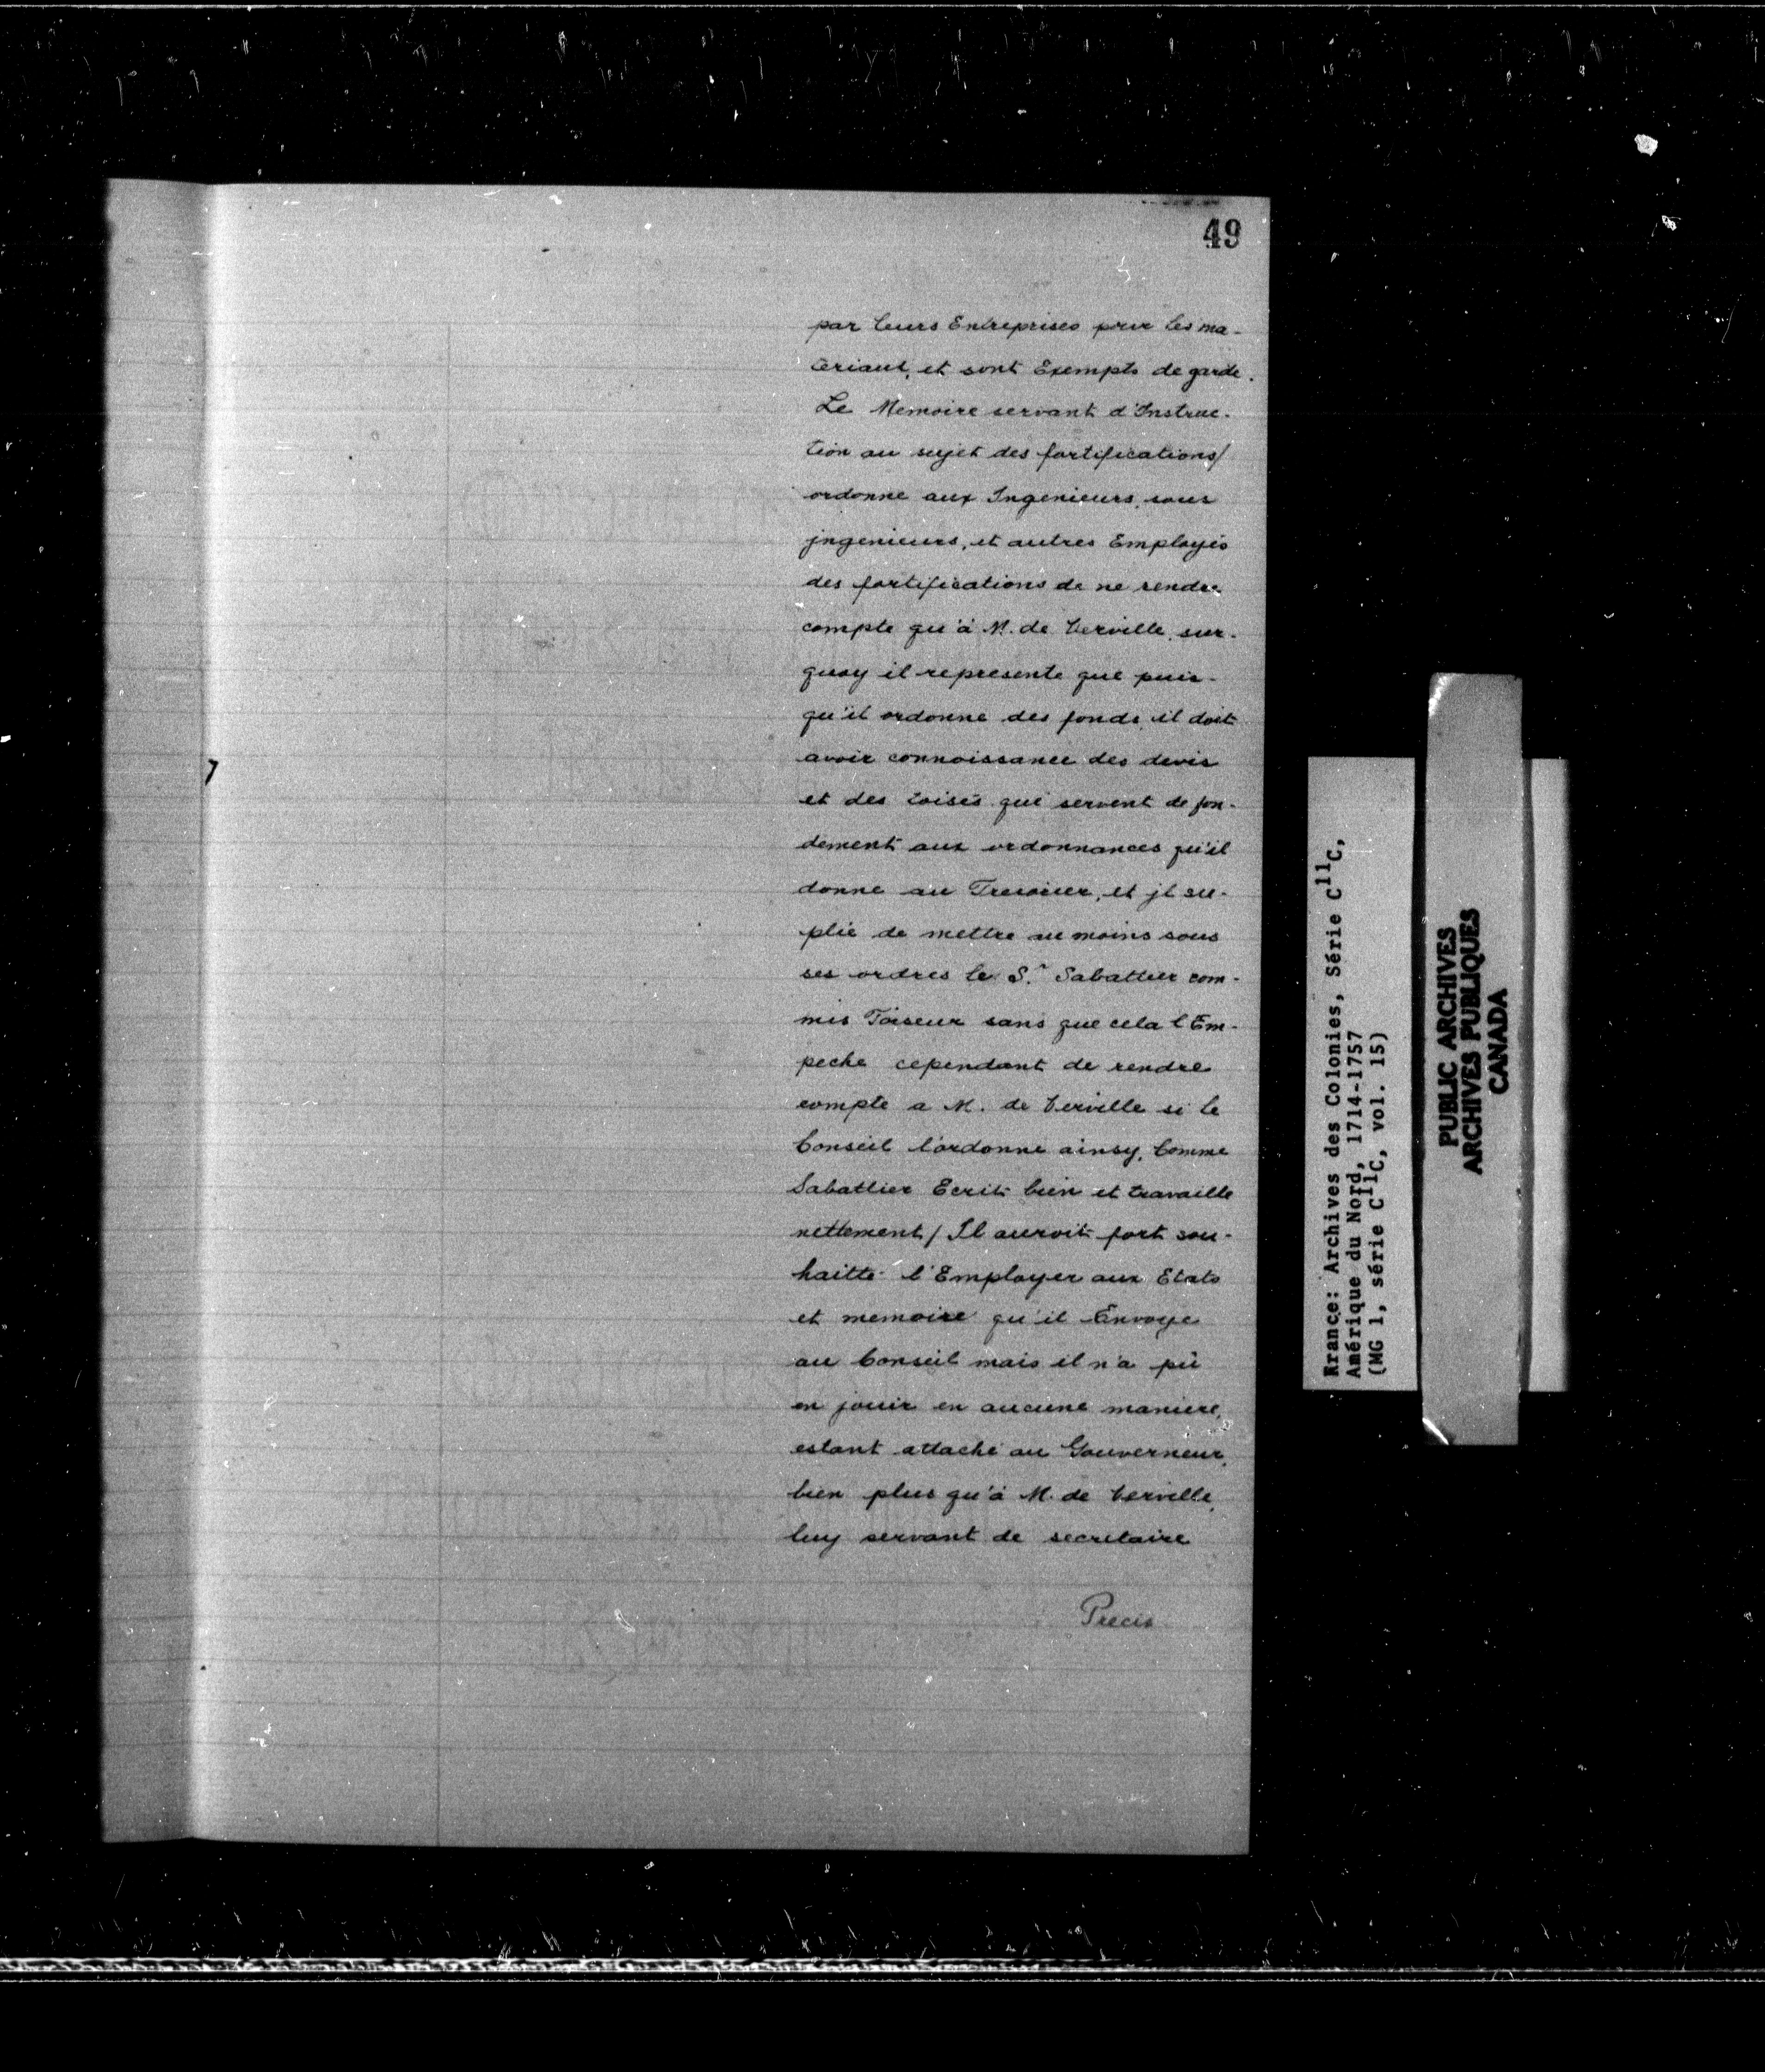 49
par leurs Entreprises pour les ma-
teriaux, et sont Exempts de garde.
Le Memoire servant d'Instruc-
tion au sujet des fortifications/
ordonne aux Ingenieurs, sous
jngenieurs, et autres Employés
des fortifications de ne rendre
compte qu'à M. de Verville, sur-
quoy il represente que puis-
qu'il ordonne des fonds, il doit
avoir connoissance des devis
et des toisés qui servent de fon-
dement aux ordonnances qu'il
donne au Tresorier, et jl su-
plie de mettre au moins sous
ses ordres le S.r Sabattier com-
mis Toiseur sans que cela l'Em-
peche cependant de rendre
compte a M. de Verville si le
Conseil l'ordonne ainsy, Comme
Sabattier Ecrit bien et travaille
nettement/ Il auroit fort sou-
haitté l'Employer aux Etats
et memoire qu'il Envoye
au Conseil mais il n'a pû
en jouir en aucune maniere,
estant attaché au Gouverneur,
bien plus qu'à M. de Verville,
luy servant de secretaire
Precis
Rrance: Archives des Colonies, Série C11C,
Amérique du Nord, 1714-1757
(MG 1, série C11C, vol. 15)
PUBLIC ARCHIVES
ARCHIVES PUBLIQUES
CANADA